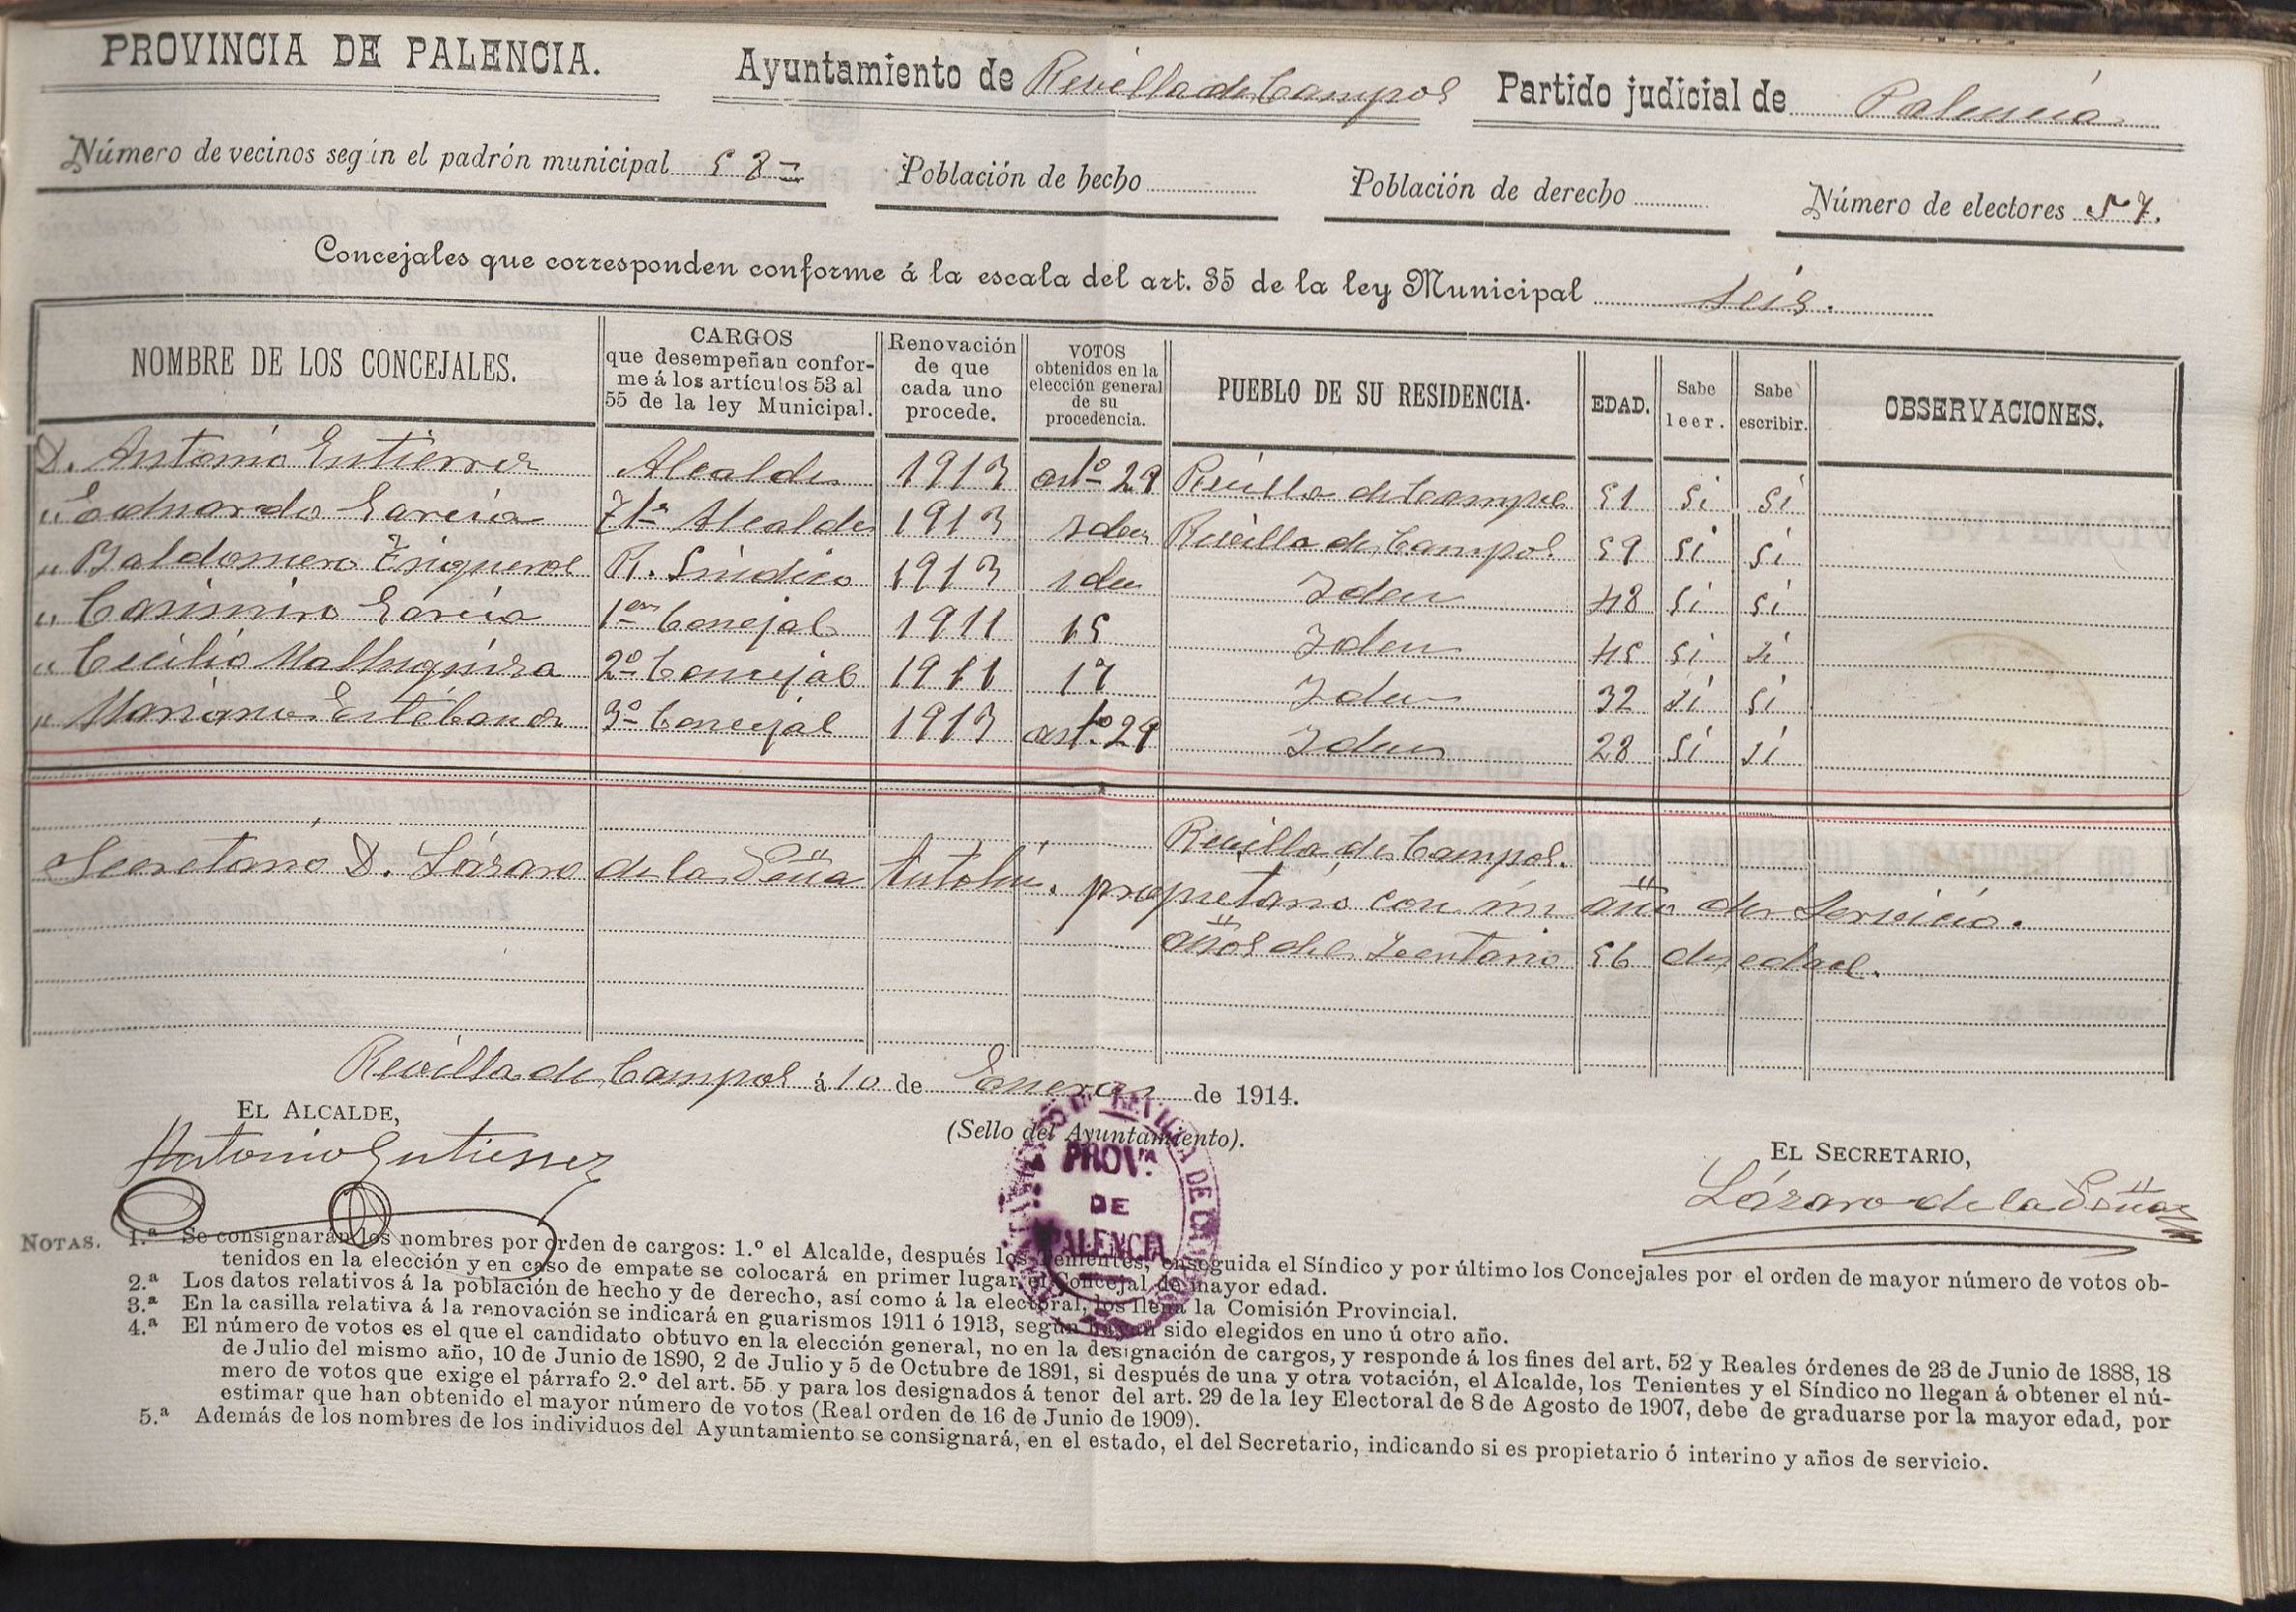 PROVINCIA DE PALENCIA. Ayuntamiento de Revilla de Campos Partido judicial de Palencia
Número de vecinos según el padrón municipal 58= Población de hecho Población de derecho Número de electores 57.
Concejales que corresponden conforme á la escala del art. 35 de la ley Municipal seis.
NOMBRE DE LOS CONCEJALES. CARGOS que desempeñan conforme á los artículos 53 al 55 de la ley Municipal. Renovación de que cada uno procede. VOTOS obtenidos en la elección general de su procedencia. PUEBLO DE SU RESIDENCIA. EDAD. Sabe leer. Sabe escribir. OBSERVACIONES.
D. Antonio Gutierrez Alcalde 1913 artº 29 Revilla de Campos 51 si si
" Eduardo Garcia Tte Alcalde 1913 idem Revilla de Campos 59 si si
" Baldomero Trigueros R. Sindico 1913 idem Idem 48 si si
" Casimiro Garcia 1er Concejal 1911 15 Idem 45 si si
" Cecilio 2º Concejal 1911 17 Idem 32 si si
" Mariano Estébanez 3º Concejal 1913 artº 29 Idem 28 si si
Revilla de Campos.
Secretario D. Lázaro de la Peña Antolin. propietario con un año de servicio.
años del Secretario 56 de edad.
Revilla de Campos á 10 de Enero de 1914.
EL ALCALDE,
(Sello del Ayuntamiento).
EL SECRETARIO,
Antonio Gutierrez
Lázaro de la Peña
PROV.A
DE
PALENCIA
NOTAS. 1.ª Se consignarán los nombres por orden de cargos: 1.º el Alcalde, después los Tenientes, enseguida el Síndico y por último los Concejales por el orden de mayor número de votos ob-
tenidos en la elección y en caso de empate se colocará en primer lugar, el Concejal de mayor edad.
2.ª Los datos relativos á la población de hecho y de derecho, así como á la electoral, los llena la Comisión Provincial.
3.ª En la casilla relativa á la renovación se indicará en guarismos 1911 ó 1913, según hayan sido elegidos en uno ú otro año.
4.ª El número de votos es el que el candidato obtuvo en la elección general, no en la designación de cargos, y responde á los fines del art. 52 y Reales órdenes de 23 de Junio de 1888, 18
de Julio del mismo año, 10 de Junio de 1890, 2 de Julio y 5 de Octubre de 1891, si después de una y otra votación, el Alcalde, los Tenientes y el Síndico no llegan á obtener el nú-
mero de votos que exige el párrafo 2.º del art. 55 y para los designados á tenor del art. 29 de la ley Electoral de 8 de Agosto de 1907, debe de graduarse por la mayor edad, por
estimar que han obtenido el mayor número de votos (Real orden de 16 de Junio de 1909).
5.ª Además de los nombres de los individuos del Ayuntamiento se consignará, en el estado, el del Secretario, indicando si es propietario ó interino y años de servicio.